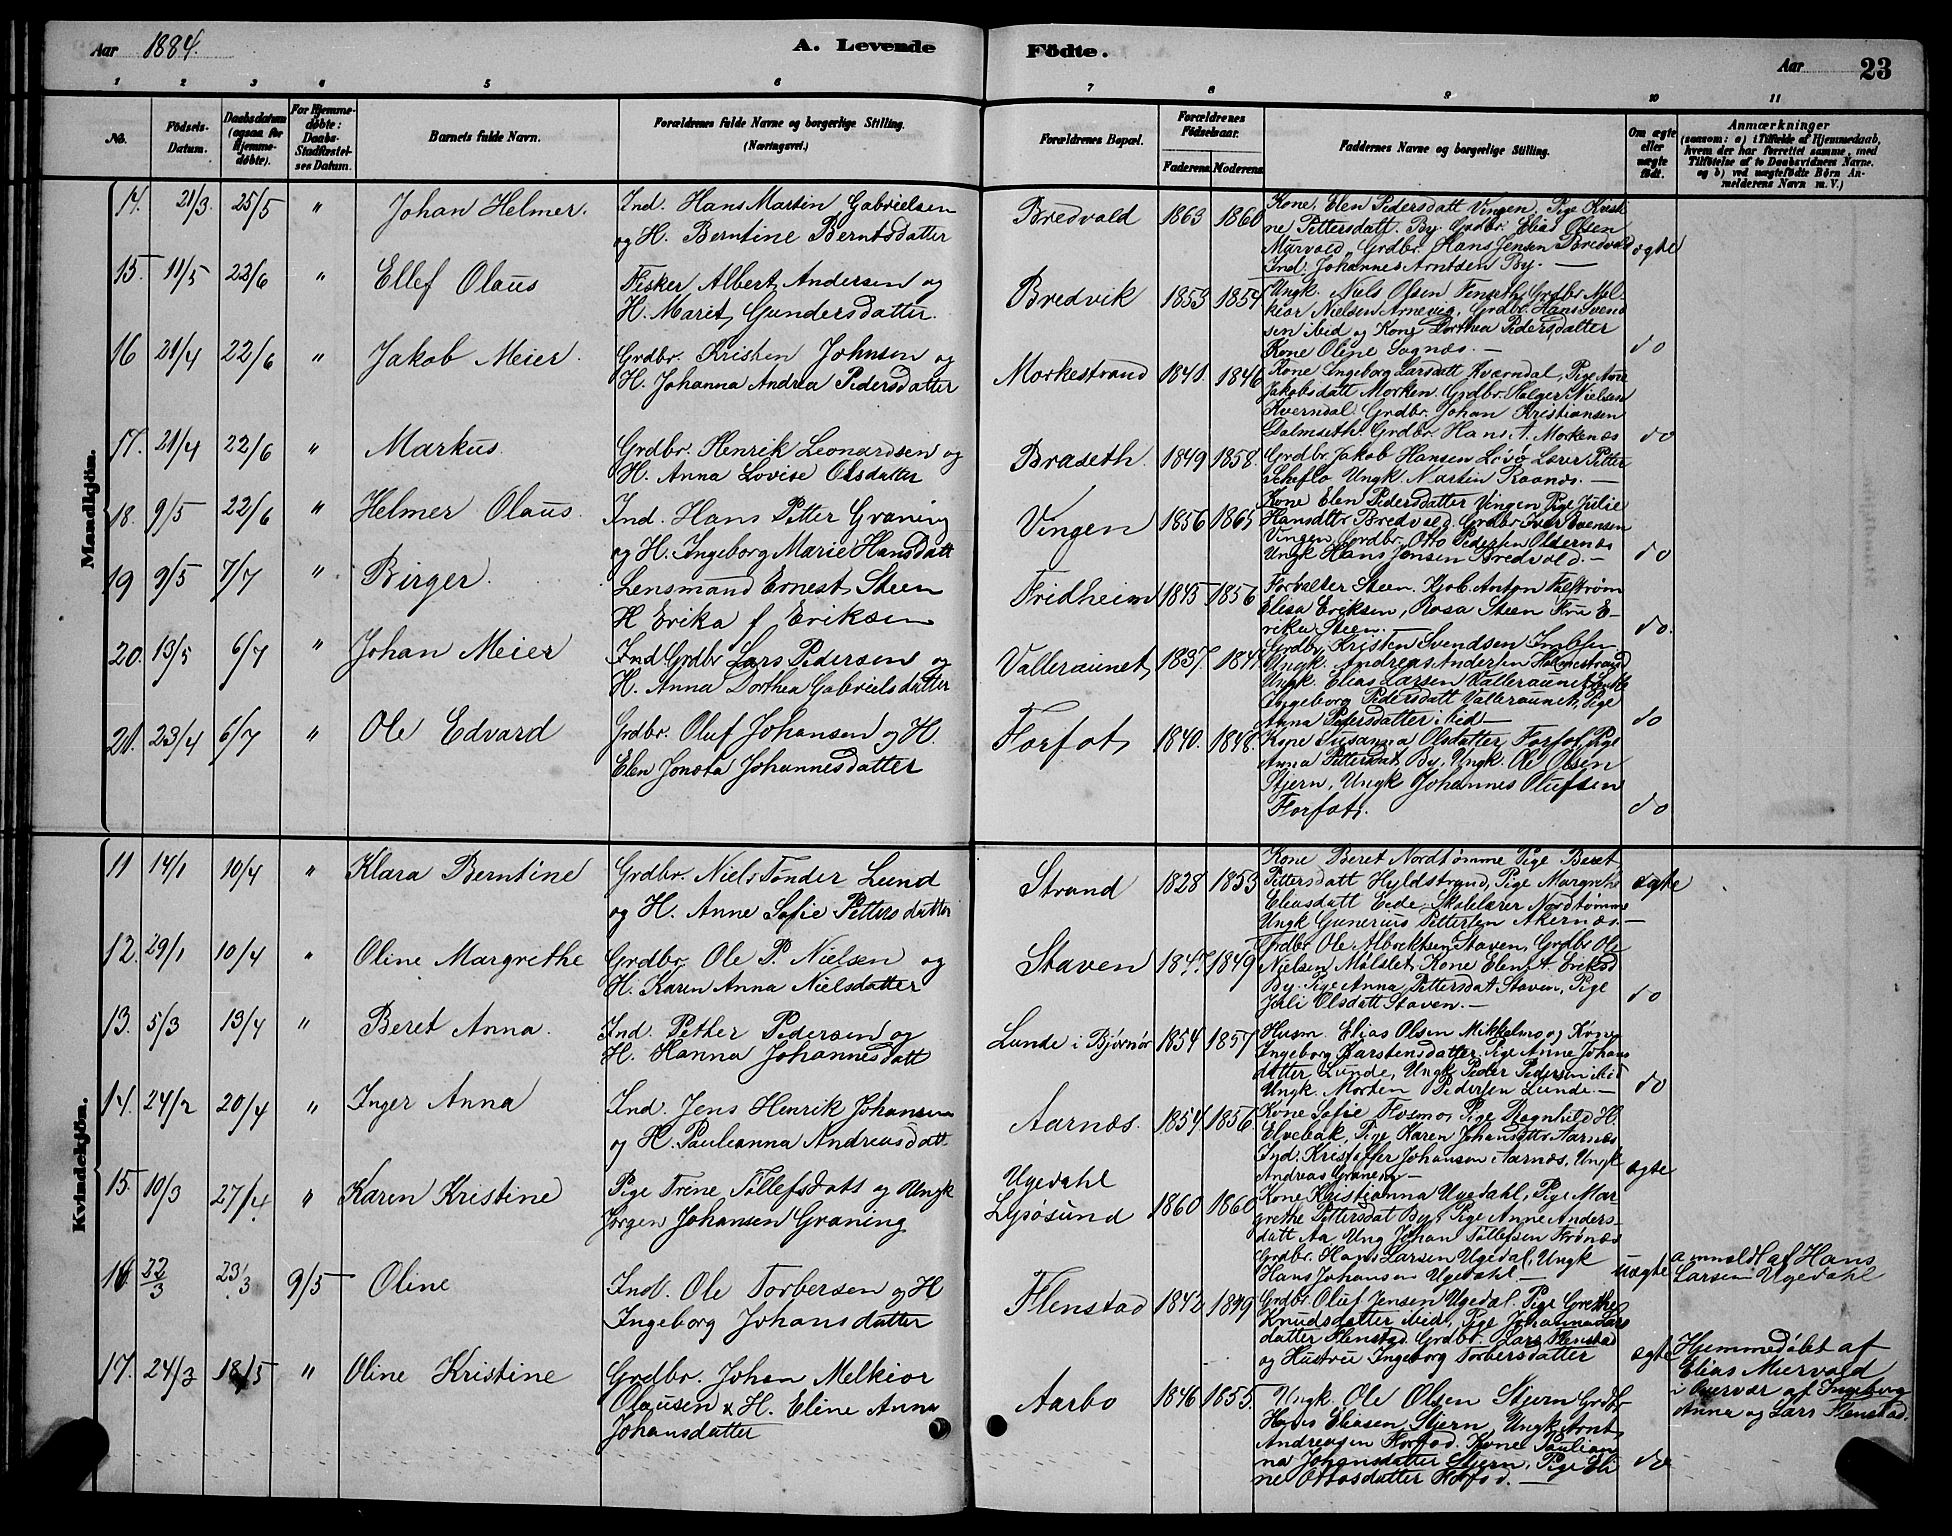 Aar 1884. A. Levende Födte. Aar 23
1 2 3 4 5 6 7 8 9 10 11
No. Födsels-Datum. Daabsdatum (ogsaa for Hjemme-döbte). For Hjemme-döbte: Daabs-Stadfæstel-ses Datum. Barnets fulde Navn. Forældrenes fulde Navne og borgerlige Stilling. (Næringsvei.) Forældrenes Bopæl. Forældrenes Födselsaar. Faderens Moderens Faddernes Navne og borgerlige Stilling. Om ægte eller uægte födt. Anmærkninger (saasom: a) i Tilfælde af Hjemmedaab, hvem der har forrettet samme, med Tilföielse af to Daabsvidners Navne, og b) ved uægtefödte Börn Anmelderens Navn m. V.)
Mandkjön.
14. 21/3. 25/5 " Johan Helmer. Ind. Hans Martin Gabrielsen
og H. Berntine Berntsdatter Bredvold 1863 1860
Kone Elen Pedersdatt Vingen, Pige Kristi
ne Pettersdatt. By. Grdbr. Elias Olsen
Murvold, Grdbr. Hans Jensen Bredvold
Ind. Johannes Arntsen By. — ægte
15. 11/5 22/6 " Ellef Olaus Fisker Albert Andersen og
H. Maret Gundersdatter. Bredvik 1853 1854
Ungk. Niels Olsen Grdbr Mel-
kior Nielsen Arnevig, Grdbr. Hans Svend
sen ibid og Kone Dorthea Pedersdatter
Kone Oline Sagnæs. — do
16 21/4 22/6 " Jakob Meier. Grdbr. Kristen Johnsen og
H. Johanna Andrea Pedersdatter Morkestrand 1840. 1846
Kone Ingeborg Larsdatt Kværndal, Pige Ane
Jakobsdatt Morken. Grdbr. Holger Nielsen
Kverndal. Grdbr. Johan Kristiansen
Dalmseth. Grdbr. Hans A. Morkenæs do
17. 21/4 22/6 " Markus. Grdbr. Henrik Leonardsen og
H. Anna Lovise Olsdatter Braseth. 1849 1858.
Grdbr. Jakob Hansen Lysø Lærer Petter
Scheflo Ungk. Martin Raanæs. —
18. 9/5 22/6 " Helmer Olaus. Ind. Hans Petter Graning
og H. Ingeborg Marie Hansdatt Vingen 1856 1865
Kone Elen Pedersdatter Vingen Pige Julie
Hansdttr Bredvold. Grdbr Iver Svensen
Vingen, Grdbr. Otto Pedersen Oldernæs
Ungk Hans Jensen Bredvold. — do
19 9/5 7/7 " Birger. Lensmand Ernest Steen
H Erika f Eriksen Fridheim 1845 1856
Forvalter Steen. Kjøb. Anton Falstrøm
Elisa Eriksen, Rosa Steen Fru E-
rika Steen. do.
20. 13/5 6/7 " Johan Meier Ind Grdbr Lars Pedersen og
H. Anna Dorthea Gabrielsdatter Valleraunet, 1837.
Grdbr. Kristen Svendsen Imblsen
Ungk. Andreas Andersen Holmestrand
Ungk. Elias Larsen Valleraunet
Ingeborg Pedersdatt Valleraunet, Pige
Anna Pedersdatter ibid — do
21. 23/4 6/7 " Ole Edvard Grdbr. Oluf Johansen og H.
Elen Jonsta Johannesdatter Forfot 1840. 1848.
Kone Susanna Olsdatter Forfot, Pige
Anna Pettersdat, By, Ungk. Ole Olsen
Stjern, Ungk Johannes Olufsen
Forfot. do
Kvindekjön.
11 14/1 10/4 " Klara Berntine Grdbr. Niels Tønder Lund
og H. Anne Sofie Pettersdatter Strand 1828 1853
Kone Beret Nordtømme Pige Beret
Pittersdatt Hyldstrand, Pige Margrethe
Eliasdatt Eide, Skolelærer Nordtømme
Ungk Gunerius Pettersen Akernæs. — ægte
12. 29/1 10/4 " Oline Margrethe Grdbr. Ole P. Nielsen og
H. Karen Anna Nielsdatter Staven 1847. 1849
Grdbr Ole Albrektsen Staven, Grdbr Ole
Nielsen Mølslet, Kone Elen A. Eriksd
By. Pige Anna Pettersdat Staven, Pige
Juli Olsdatt Staven. — do
13. 5/3 13/4 " Beret Anna. Ind. Petter Pedersen og
H. Hanna Johannesdatt Lunde i Bjørnør 1854 1857
Husm. Elias Olsen Mikkelmo og Kone
Ingeborg Karstensdatter. Pige Anne Johans
datter Lunde, Ungk Peder Pedersen ibid
Ungk. Morten Pedersen Lunde. — do
14. 24/2 20/4 " Inger Anna Ind. Jens Henrik Johansen
og H. Pauleanna Andreasdatt Aarnæs. 1854. 1856.
Kone Sofie Flosmo, Pige Ragnhild H.
Elvebak, Pige Karen Johansdttr Aarnæs
Ind. Kristoffer Johansen Aarnæs, Ungk
Andreas Graning — ægte
15. 10/3 27/4 " Karen Kristine Pige Trine Tollefsdatt og Ungk
Jørgen Johansen Graning Ugedahl
Lysøsund 1860 1860
Kone Kristianna Ugedahl, Pige Mar
grethe Pettersdat By, Pige Anne Anders-
datt Aa Ung Johan Tollefsen Frønæs
Grdbr. Hans Larsen Ugedal, Ungk
Hans Johansen Ugedahl — uægte anmeldt af Hans
Larsen Ugedahl
16 22/3 23/3 9/5 Oline Ind. Ole Torbersen og H
Ingeborg Johansdatter Flenstad 1842 1849
Grdbr Oluf Jensen Ugedal. Pige Grethe
Knudsdatter ibid, Pige Johanna Lars
datter Flenstad Grdbr. Lars Flenstad
og Hustru Ingeborg Torbersdatter ægte Hjemmedøbt af
Elias Murvold
i Overvær af Ingeborg
Anna og Lars Flenstad.
17. 24/3 18/5 " Oline Kristine Grdbr. Johan Melkior
Olausen & H. Eline Anna
Johansdatter Aarbo 1846 1855.
Ungk. Ole Olsen Stjern Grdbr
Hans Eliasen Stjern, Ungk Arnt
Andreasen Forfod. Kone Paulian
na Johansdatter Stjern, Pige Eli
ne Ottosdatter Forfod. — do